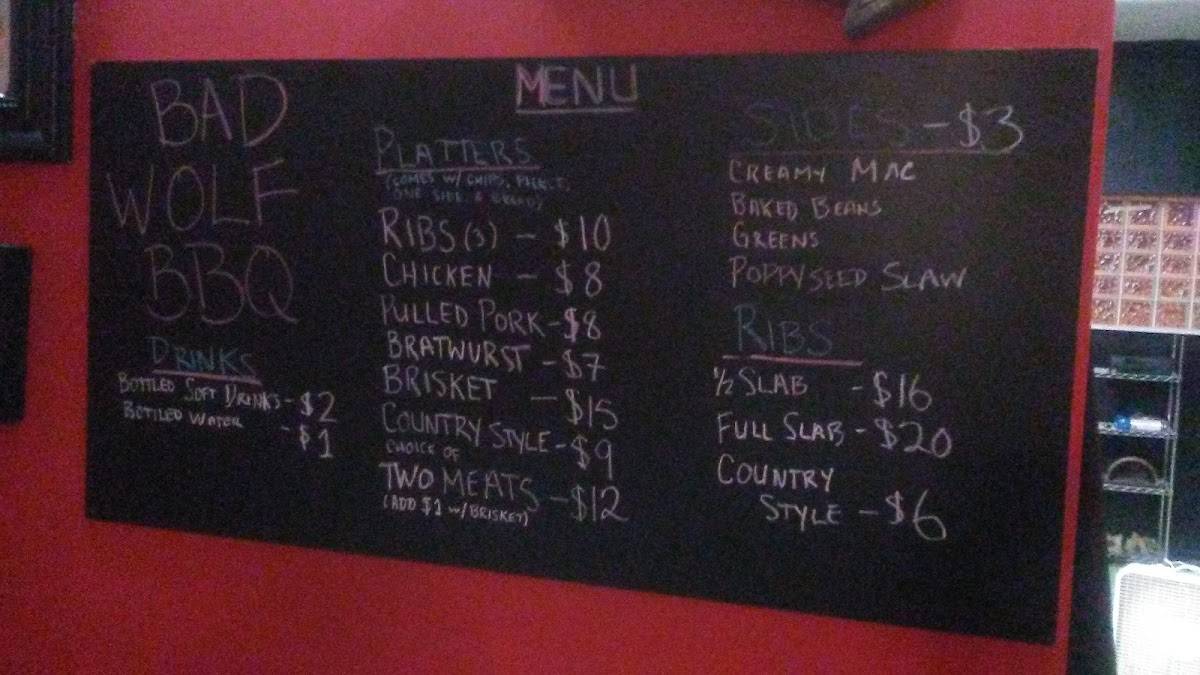 BAD
WOLF
BBQ
DRINKS
BOTTLED SOFT DRINKS - $2
BOTTLED WATER - $1
MENU
PLATTERS
(COMES W/ CHIPS, PICKLE,
ONE SIDE & BREAD)
RIBS (3) - $10
CHICKEN - $8
PULLED PORK - $8
BRATWURST - $7
BRISKET - $15
COUNTRY STYLE - $9
CHOICE OF
TWO MEATS - $12
(ADD $1 W/ BRISKET)
SIDES - $3
CREAMY MAC
BAKED BEANS
GREENS
POPPYSEED SLAW
RIBS
1/2 SLAB - $16
FULL SLAB - $20
COUNTRY
STYLE - $6